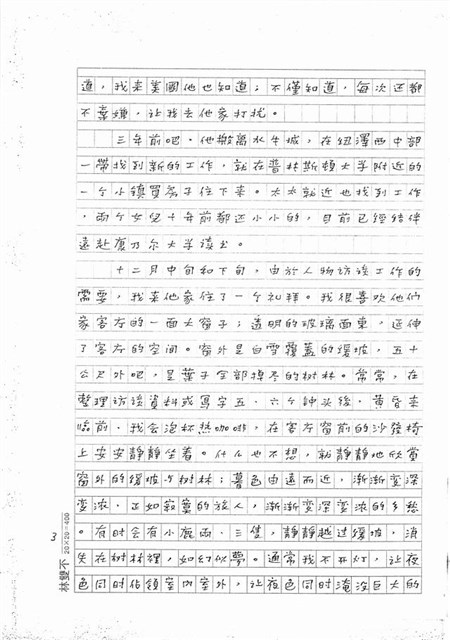 道，我來美國他也知道；不僅知道，每次还都
不棄嫌，让我去他家打扰。
三年前吧，他搬离水牛城，在纽澤西中部
一带找到新的工作，就在普林斯頓大学附近的
一个小镇買房子住下来。太太就近也找到工作
，两个女兒十年前都还小小的，目前已經结伴
遠赴康乃尔大学读书。
十二月中旬和下旬，由於人物訪談工作的
需要，我来他家住了一个礼拜。我很喜欢他们
家客厅的一面大窗子；透明的玻璃面東，延伸
了客厅的空间。窗外是白雪覆蓋的缓坡，五十
公尺外吧，是葉子全部尽的树林。常常，在
整理訪談資料或写字五、六个钟头後，黄昏来
臨前，我会泡杯热咖啡，在客厅窗前的沙發椅
上安安静静坐着。什么也不想，就静静地欣賞
窗外的缓坡与树林；暮色由遠而近，渐渐变深
变浓，正如寂寞的旅人，渐渐变深变浓的乡愁
。有时会有小鹿两、三隻，静静越过缓坡，消
失在树林裡，如幻似夢。通常我不开灯，让夜
色同时佔領室内室外，让夜色同时淹没自大的
3
林雙不 20×20=400